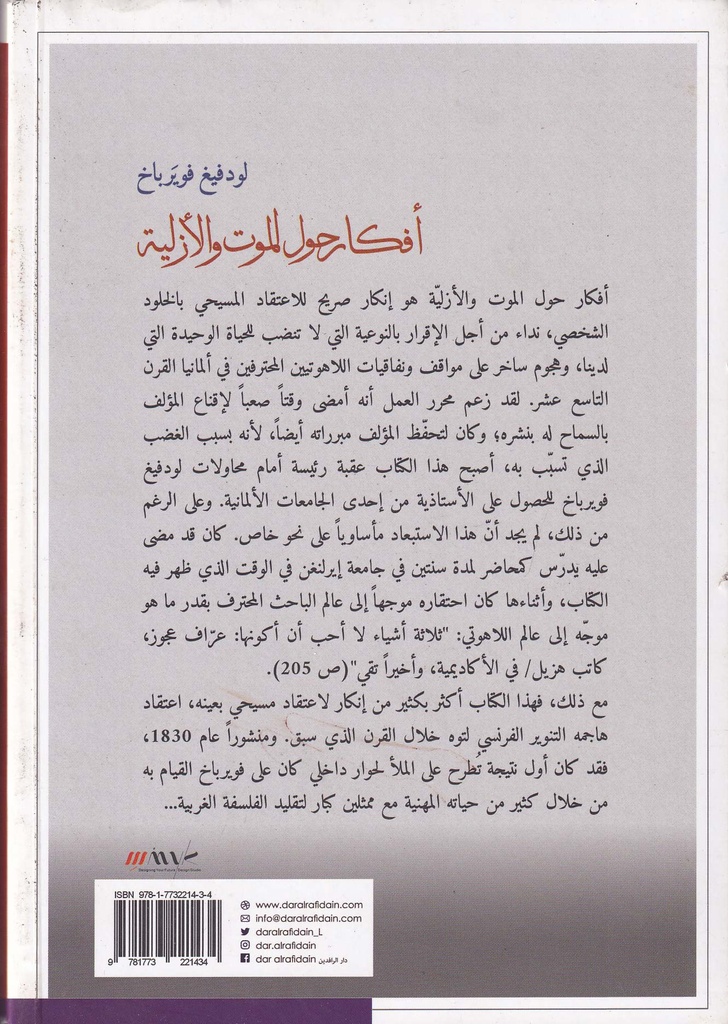 لودفيغ فويَرباخ
أفكار حول الموت والأزلية
أفكار حول الموت والأزليّة هو إنكار صريح للاعتقاد المسيحي بالخلود
الشخصي، نداء من أجل الإقرار بالنوعية التي لا تنضب للحياة الوحيدة التي
لدينا، وهجوم ساخر على مواقف ونفاقيات اللاهوتيين المحترفين في ألمانيا القرن
التاسع عشر. لقد زعم محرر العمل أنه أمضى وقتاً صعباً لإقناع المؤلف
بالسماح له بنشره؛ وكان لتحفّظ المؤلف مبرراته أيضاً، لأنه بسبب الغضب
الذي تسبّب به، أصبح هذا الكتاب عقبة رئيسة أمام محاولات لودفيغ
فويرباخ للحصول على الأستاذية من إحدى الجامعات الألمانية. وعلى الرغم
من ذلك، لم يجد أنّ هذا الاستبعاد مأساوياً على نحو خاص. كان قد مضى
عليه يدرّس كمحاضر لمدة سنتين في جامعة إيرلنغن في الوقت الذي ظهر فيه
الكتاب، وأثناءها كان احتقاره موجهاً إلى عالم الباحث المحترف بقدر ما هو
موجّه إلى عالم اللاهوتي: "ثلاثة أشياء لا أحب أن أكونها: عرّاف عجوز،
كاتب هزيل/ في الأكاديمية، وأخيراً تقي"(ص 205).
مع ذلك، فهذا الكتاب أكثر بكثير من إنكار لاعتقاد مسيحي بعينه، اعتقاد
هاجمه التنوير الفرنسي لتوه خلال القرن الذي سبق. ومنشوراً عام 1830،
فقد كان أول نتيجة تُطرح على الملأ لحوار داخلي كان على فويرباخ القيام به
من خلال كثير من حياته المهنية مع ممثلين كبار لتقليد الفلسفة الغربية...
ISBN 978-1-7732214-3-4
9 781773 221434
www.daralrafidain.com
info@daralrafidain.com
daralrafidain_L
dar.alrafidain
dar alrafidain دار الرافدين